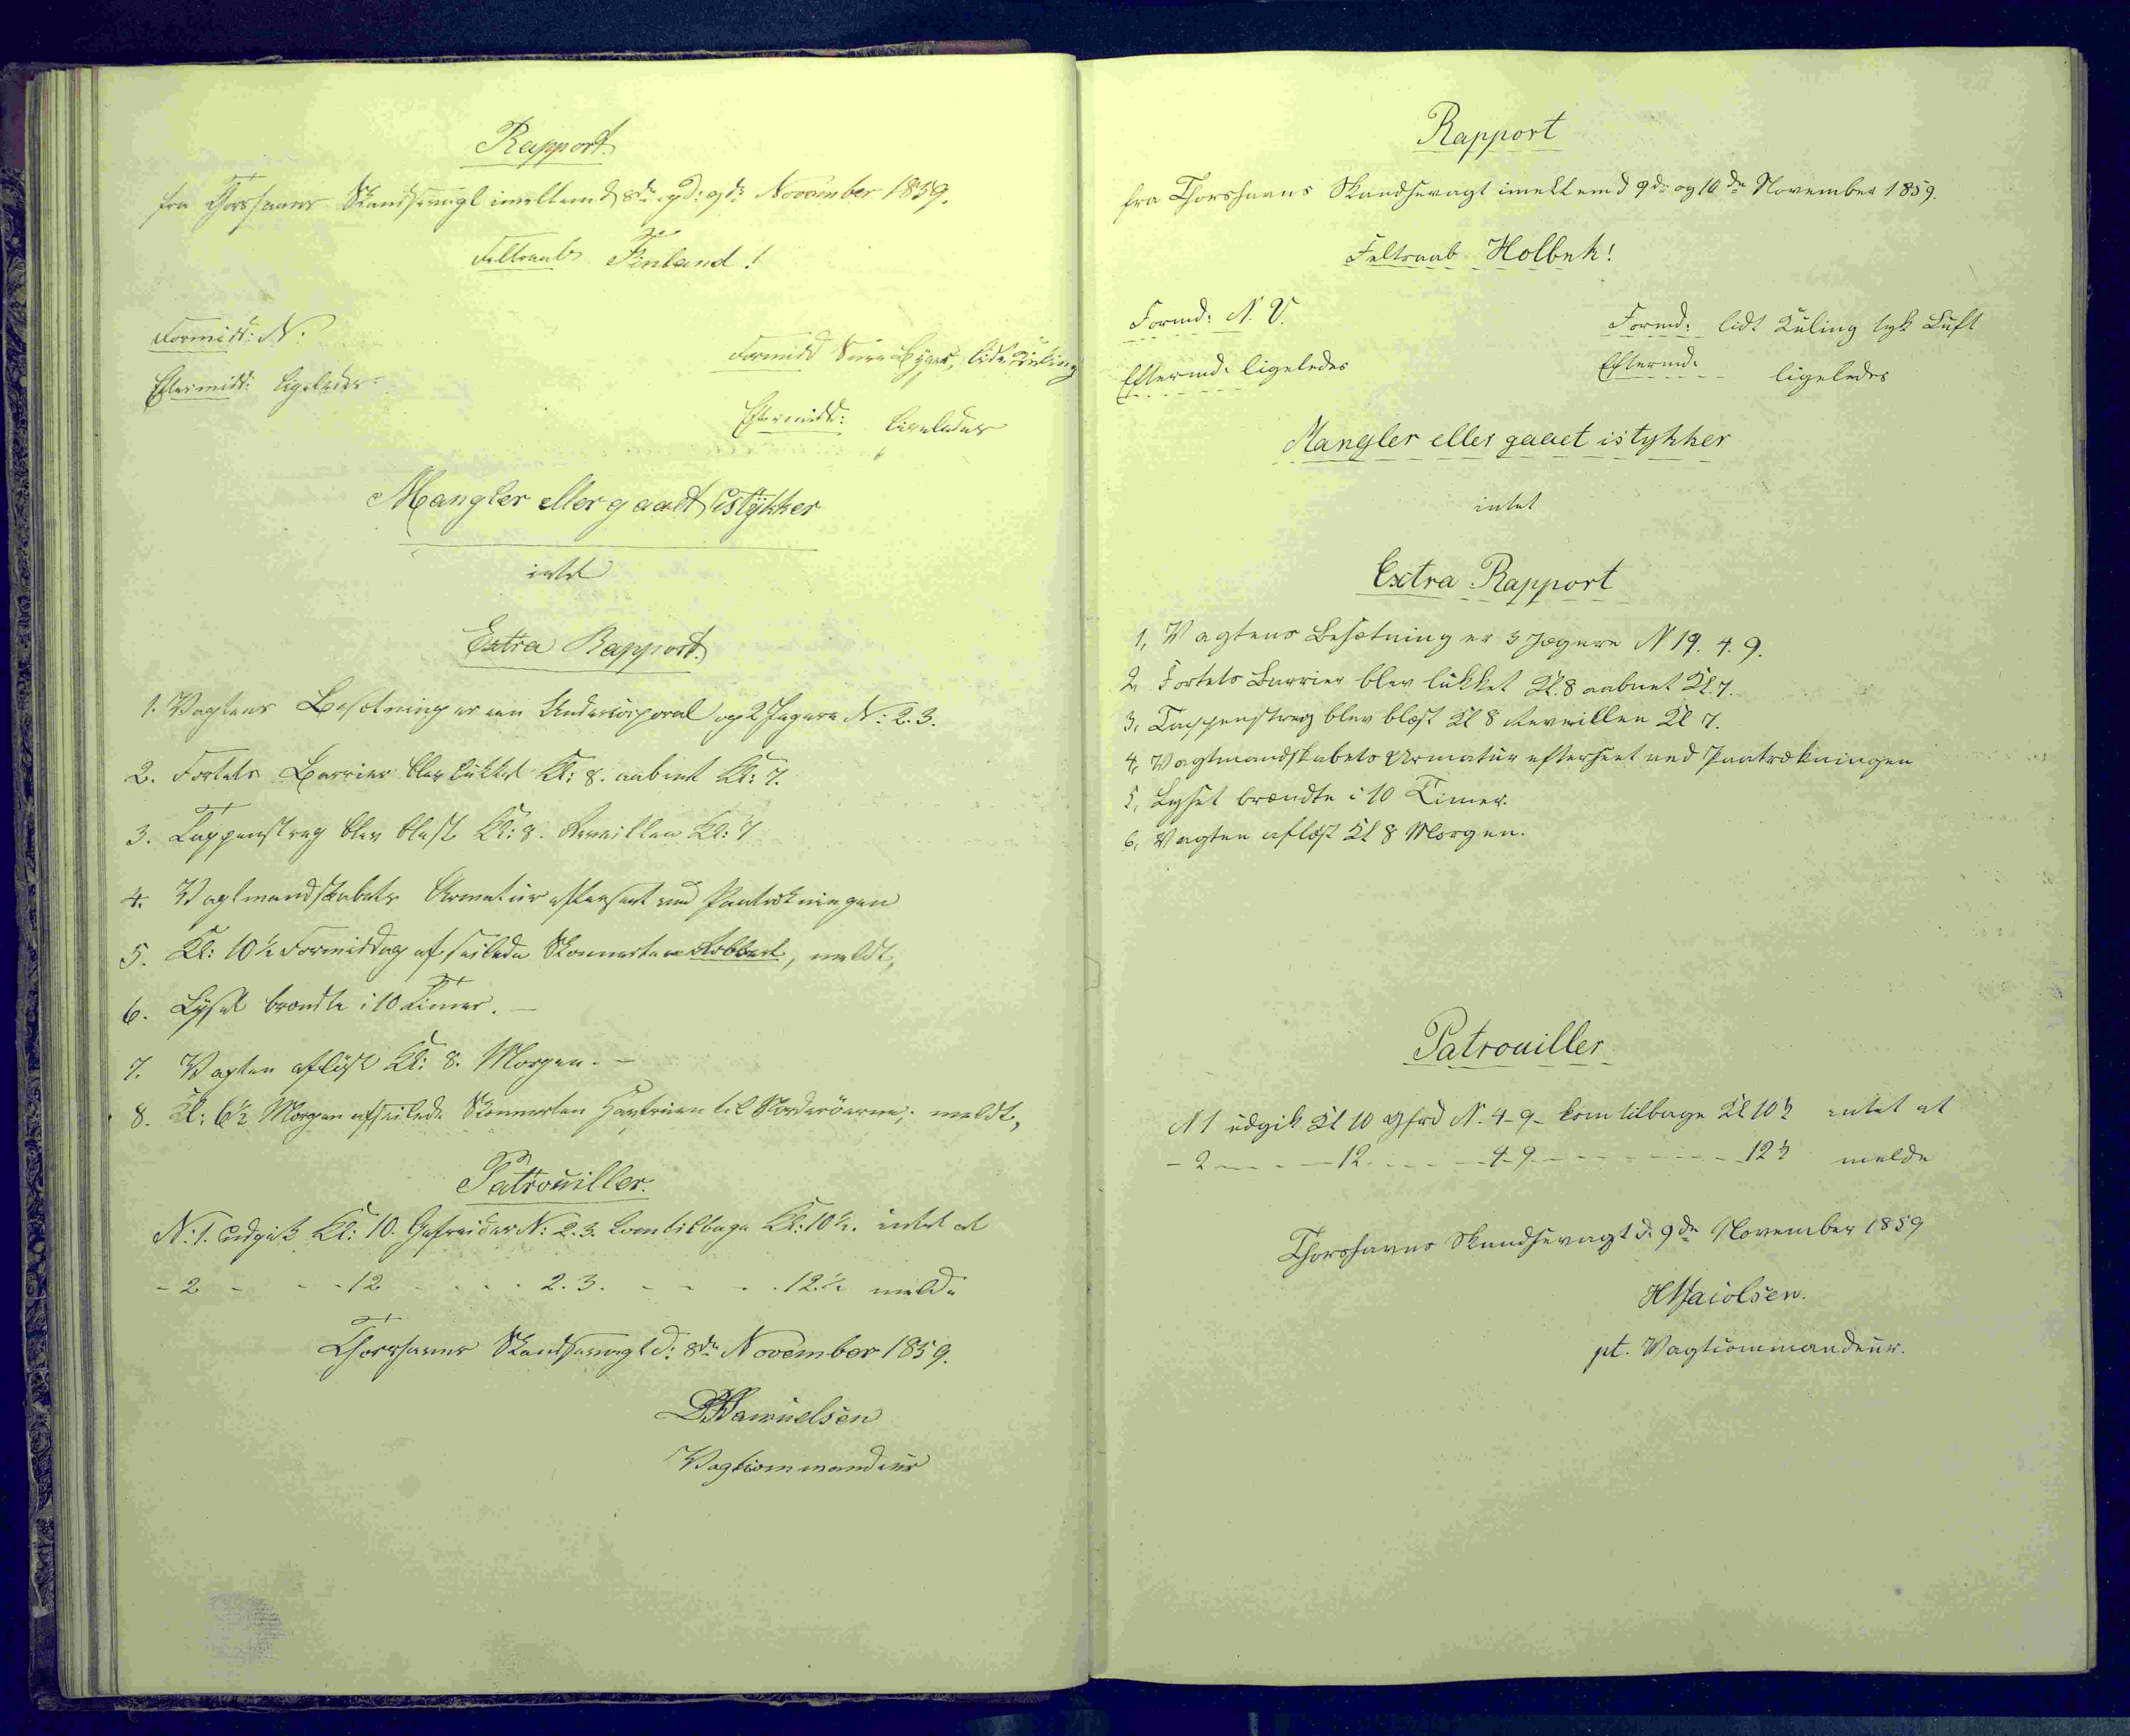 Rapport.
fra Thorshavns Skandsevagt imellem d 8de og d: 9de November 1859.
Feltraab Finland!
Formidd: N.
Eftermidd: ligeledes
Formidd Snee Byger, lidt Kuling
Eftermidd: ligeledes
Mangler eller gaaet istykker
intet
Extra Rapport.
1. Vagtens Besætning er een Undercorporal og 2 Jægere N: 2. 3.
2. Fortets Barrier blev lukket Kl: 8. aabnet Kl: 7.
3. Tappenstreg blev blæst Kl: 8. Reveillen Kl: 7
4. Vagtmandskabets Armatur efterseet ved Paatrækningen
5. Kl: 10½ Formiddag afseilede Skonnerten, meldt,
6. Lyset brændte i 10 Timer. —
7. Vagten afløst Kl: 8. Morgen. —
8. Kl: 6½ Morgen afseilede Skonnerten Havfruen til Norderöerne; meldt,
Patrouiller.
N: 1. Udgik Kl: 10. Gefreider N: 2. 3. kom tilbage Kl: 10½. intet at
- 2 - - - 12 - - - - 2. 3. - - - - 12½ melde
Thorshavns Skandsevagt d: 8de November 1859.
Samuelsen
Vagtcommandeur
Rapport
fra Thorshavns Skandsevagt imellem d 9de og 10de November 1859.
Feltraab Holbek!
Formd: N. V.
Eftermd: ligeledes
Formd: lidt Kuling tyk Luft
Eftermd: ligeledes
Mangler eller gaaet istykker
intet
Extra Rapport
1, Vagtens Besætning er 3 Jægere N 19. 4. 9.
2, Fortets Barrier blev lukket Kl. 8 aabnet Kl. 7.
3, Tappenstreg blev blæst Kl 8 Reveillen Kl 7.
4, Vagtmandskabets Armatur efterseet ved Paatrækningen
5, Lyset brændte i 10 Timer.
6, Vagten afløst Kl 8 Morgen.
Patrouiller
N 1 udgik Kl 10 Gfrd N. 4-9- kom tilbage Kl 10½ intet at
- 2 - - - - 12 - - - - 4-9 - - - - - - - 12½ melde
Thorshavns Skandsevagt d. 9de November 1859
pt. Vagtcommandeur.